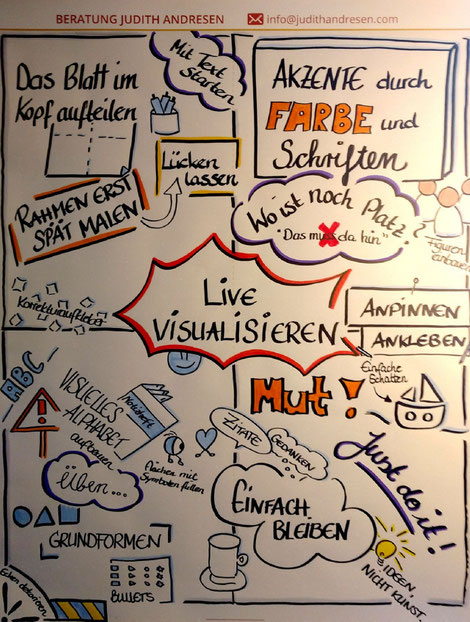 BERATUNG JUDITH ANDRESEN
info@judithandresen.com
Das Blatt im
Kopf aufteilen
Mit Text
Starten
AKZENTE durch
FARBE und
Schriften
Lücken
lassen
RAHMEN ERST
SPÄT MALEN
Wo ist noch Platz?
"Das muss da hin"
Figuren
einbauen
Korrekturaufkleber
LIVE
VISUALISIEREN
ANPINNEN
ANKLEBEN
Einfache
Schatten
Mut!
ABC
VISUELLES
ALPHABET
aufbauen
Flächen mit
Symbolen füllen
ZITATE
GEDANKEN
Just do it!
Üben...
EINFACH
BLEIBEN
GRUNDFORMEN
IDEEN,
NICHT KUNST.
BULLETS
Ecken dekorieren